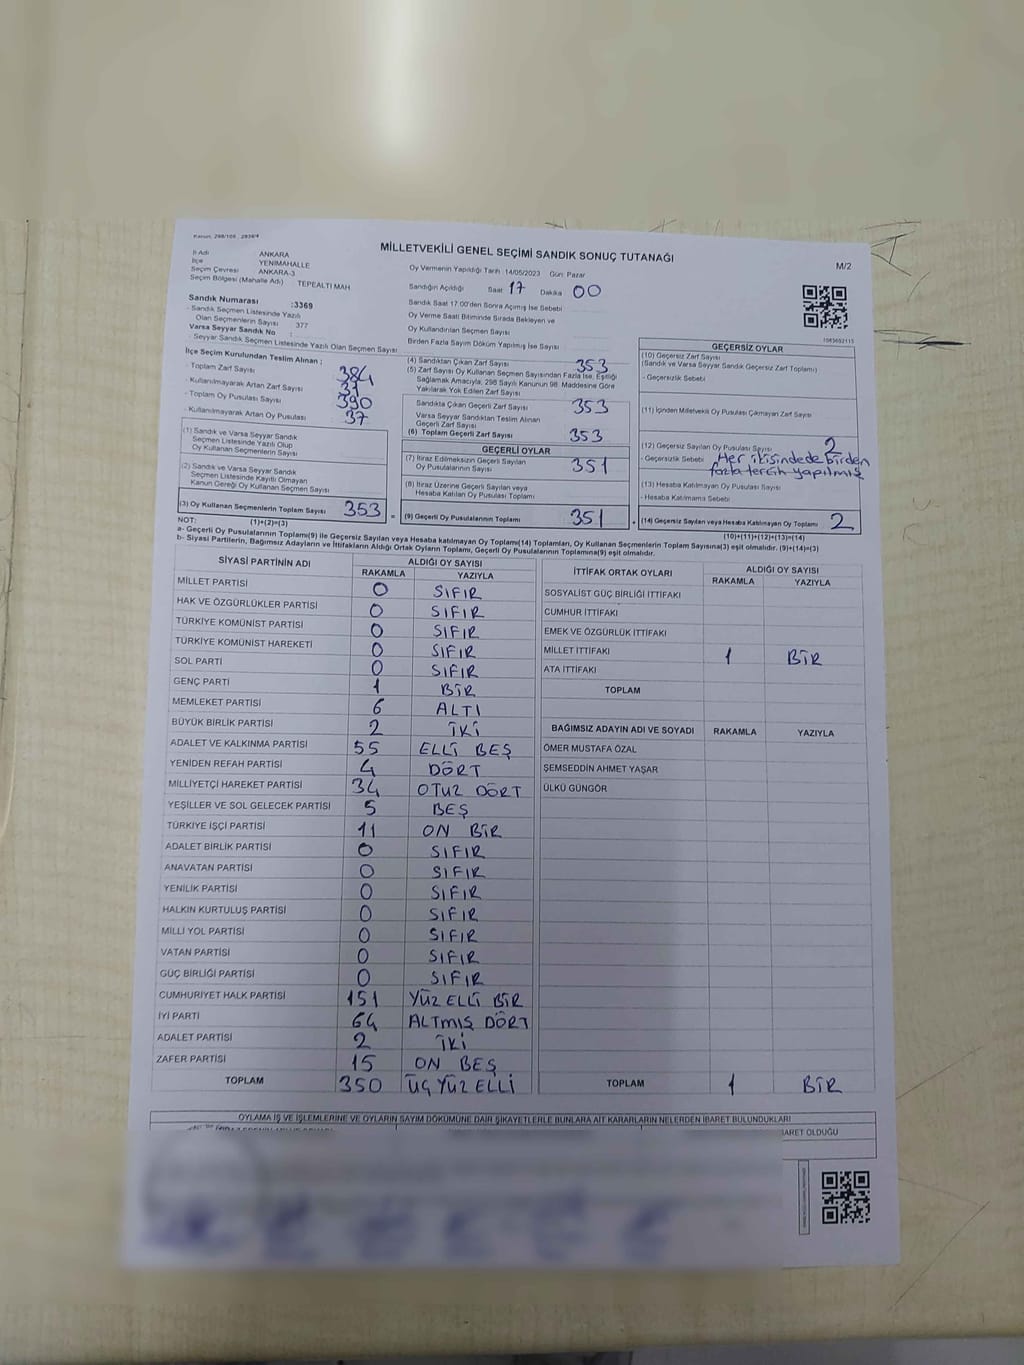 Kanun: 298/105 , 2839/4
MİLLETVEKİLİ GENEL SEÇİMİ SANDIK SONUÇ TUTANAĞI
M/2
İl Adı ANKARA
İlçe YENİMAHALLE
Seçim Çevresi ANKARA-3
Seçim Bölgesi (Mahalle Adı) TEPEALTI MAH
Oy Vermenin Yapıldığı Tarih :14/05/2023 Gün: Pazar
Sandığın Açıldığı Saat 17 Dakika 00
Sandık Saat 17:00'den Sonra Açılmış İse Sebebi
Oy Verme Saati Bitiminde Sırada Bekleyen ve
Oy Kullandırılan Seçmen Sayısı
Birden Fazla Sayım Döküm Yapılmış İse Sayısı
Sandık Numarası :3369
- Sandık Seçmen Listesinde Yazılı
Olan Seçmenlerin Sayısı 377
Varsa Seyyar Sandık No :
- Seyyar Sandık Seçmen Listesinde Yazılı Olan Seçmen Sayısı
İlçe Seçim Kurulundan Teslim Alınan :
- Toplam Zarf Sayısı 384
- Kullanılmayarak Artan Zarf Sayısı 31
- Toplam Oy Pusulası Sayısı 390
- Kullanılmayarak Artan Oy Pusulası 37
(1) Sandık ve Varsa Seyyar Sandık
Seçmen Listesinde Yazılı Olup
Oy Kullanan Seçmenlerin Sayısı
(2) Sandık ve Varsa Seyyar Sandık
Seçmen Listesinde Kayıtlı Olmayan
Kanun Gereği Oy Kullanan Seçmen Sayısı
(3) Oy Kullanan Seçmenlerin Toplam Sayısı 353
(1)+(2)=(3)
(4) Sandıktan Çıkan Zarf Sayısı 353
(5) Zarf Sayısı Oy Kullanan Seçmen Sayısından Fazla İse, Eşitliği
Sağlamak Amacıyla, 298 Sayılı Kanunun 98. Maddesine Göre
Yakılarak Yok Edilen Zarf Sayısı
Sandıkta Çıkan Geçerli Zarf Sayısı 353
Varsa Seyyar Sandıktan Teslim Alınan
Geçerli Zarf Sayısı
(6) Toplam Geçerli Zarf Sayısı 353
GEÇERLİ OYLAR
(7) İtiraz Edilmeksizin Geçerli Sayılan
Oy Pusulalarının Sayısı 351
(8) İtiraz Üzerine Geçerli Sayılan veya
Hesaba Katılan Oy Pusulası Toplamı
(9) Geçerli Oy Pusulalarının Toplamı 351
GEÇERSİZ OYLAR
(10) Geçersiz Zarf Sayısı
(Sandık ve Varsa Seyyar Sandık Geçersiz Zarf Toplamı)
- Geçersizlik Sebebi
(11) İçinden Milletvekili Oy Pusulası Çıkmayan Zarf Sayısı
(12) Geçersiz Sayılan Oy Pusulası Sayısı 2
- Geçersizlik Sebebi Her ikisindede birden
fazla tercih yapılmış
(13) Hesaba Katılmayan Oy Pusulası Sayısı
- Hesaba Katılmama Sebebi
(14) Geçersiz Sayılan veya Hesaba Katılmayan Oy Toplamı 2
(10)+(11)+(12)+(13)=(14)
NOT:
a- Geçerli Oy Pusulalarının Toplamı(9) ile Geçersiz Sayılan veya Hesaba katılmayan Oy Toplamı(14) Toplamları, Oy Kullanan Seçmenlerin Toplam Sayısına(3) eşit olmalıdır. (9)+(14)=(3)
b- Siyasi Partilerin, Bağımsız Adayların ve İttifakların Aldığı Ortak Oyların Toplamı, Geçerli Oy Pusulalarının Toplamına(9) eşit olmalıdır.
SİYASİ PARTİNİN ADI ALDIĞI OY SAYISI
RAKAMLA YAZIYLA
MİLLET PARTİSİ 0 SIFIR
HAK VE ÖZGÜRLÜKLER PARTİSİ 0 SIFIR
TÜRKİYE KOMÜNİST PARTİSİ 0 SIFIR
TÜRKİYE KOMÜNİST HAREKETİ 0 SIFIR
SOL PARTİ 0 SIFIR
GENÇ PARTİ 1 BİR
MEMLEKET PARTİSİ 6 ALTI
BÜYÜK BİRLİK PARTİSİ 2 İKİ
ADALET VE KALKINMA PARTİSİ 55 ELLİ BEŞ
YENİDEN REFAH PARTİSİ 4 DÖRT
MİLLİYETÇİ HAREKET PARTİSİ 34 OTUZ DÖRT
YEŞİLLER VE SOL GELECEK PARTİSİ 5 BEŞ
TÜRKİYE İŞÇİ PARTİSİ 11 ON BİR
ADALET BİRLİK PARTİSİ 0 SIFIR
ANAVATAN PARTİSİ 0 SIFIR
YENİLİK PARTİSİ 0 SIFIR
HALKIN KURTULUŞ PARTİSİ 0 SIFIR
MİLLİ YOL PARTİSİ 0 SIFIR
VATAN PARTİSİ 0 SIFIR
GÜÇ BİRLİĞİ PARTİSİ 0 SIFIR
CUMHURİYET HALK PARTİSİ 151 YÜZ ELLİ BİR
İYİ PARTİ 64 ALTMIŞ DÖRT
ADALET PARTİSİ 2 İKİ
ZAFER PARTİSİ 15 ON BEŞ
TOPLAM 350 ÜÇ YÜZ ELLİ
İTTİFAK ORTAK OYLARI ALDIĞI OY SAYISI
RAKAMLA YAZIYLA
SOSYALİST GÜÇ BİRLİĞİ İTTİFAKI
CUMHUR İTTİFAKI
EMEK VE ÖZGÜRLÜK İTTİFAKI
MİLLET İTTİFAKI 1 BİR
ATA İTTİFAKI
TOPLAM
BAĞIMSIZ ADAYIN ADI VE SOYADI RAKAMLA YAZIYLA
ÖMER MUSTAFA ÖZAL
ŞEMSEDDİN AHMET YAŞAR
ÜLKÜ GÜNGÖR
TOPLAM 1 BİR
OYLAMA İŞ VE İŞLEMLERİNE VE OYLARIN SAYIM DÖKÜMÜNE DAİR ŞİKAYETLERLE BUNLARA AİT KARARLARIN NELERDEN İBARET BULUNDUKLARI
İBARET OLDUĞU